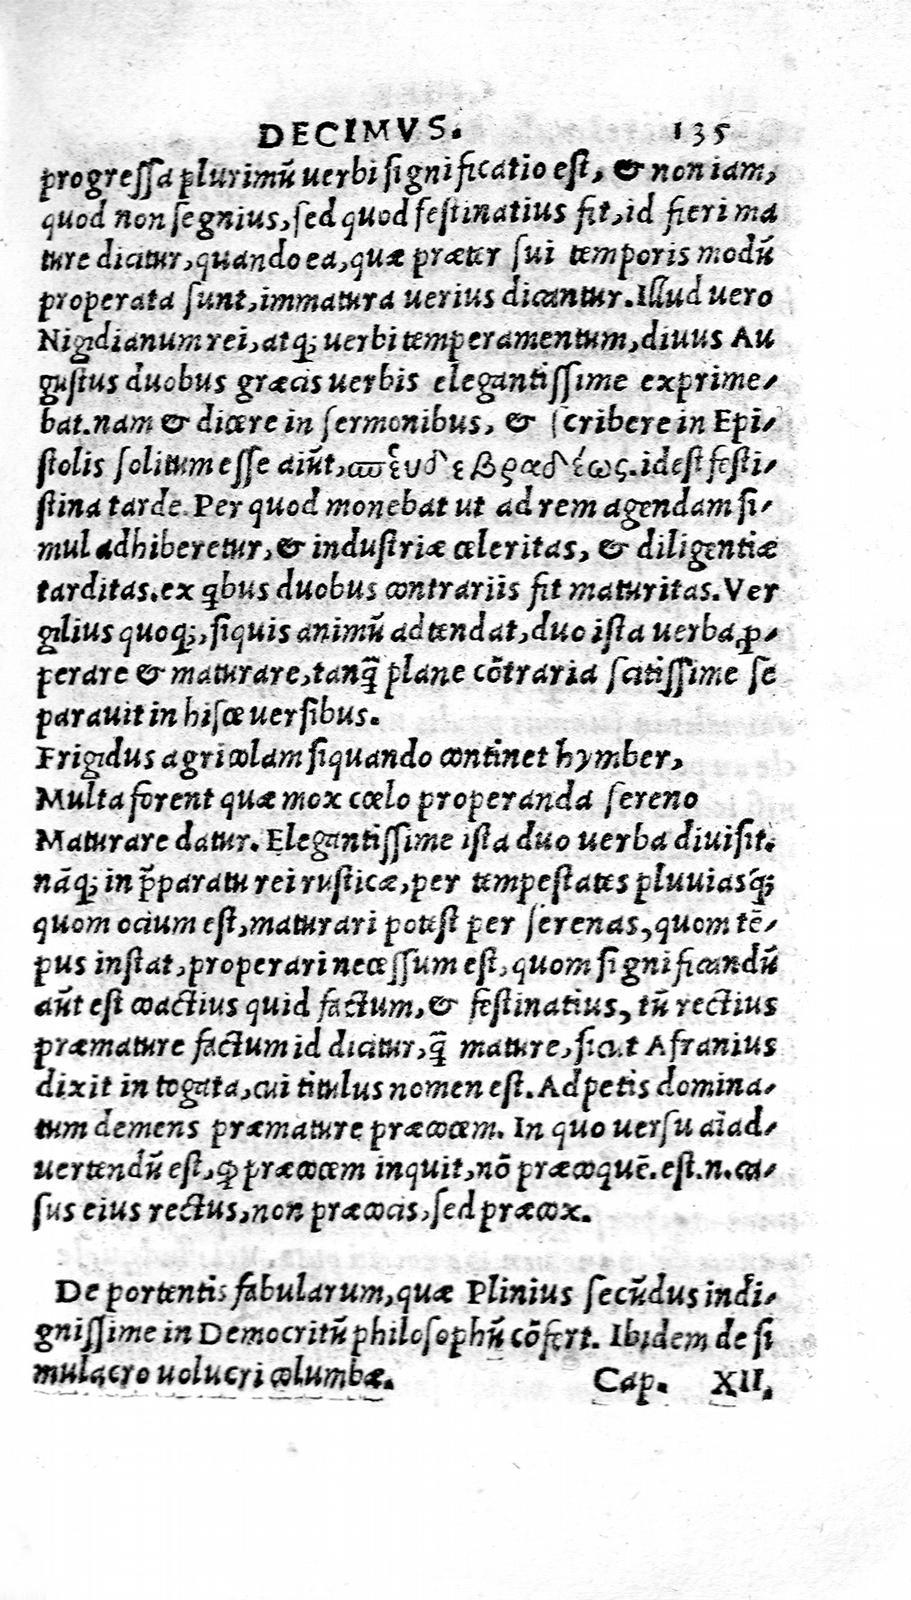 DECIMVS. 135
progressa plurimũ uerbi significatio est, & non iam,
quod non segnius, sed quod festinatius fit, id fieri ma
ture dicitur, quando ea, quæ præter sui temporis modũ
properata sunt, immatura uerius dicantur. Illud uero
Nigidianum rei, atq; uerbi temperamentum, diuus Au
gustus duobus græcis uerbis elegantissime exprime-
bat. nam & dicere in sermonibus, & scribere in Epi-
stolis solitum esse aiũt, σπεῦδε βραδέως. id est festi-
stina tarde. Per quod monebat ut ad rem agendam si-
mul adhiberetur, & industriæ celeritas, & diligentiæ
tarditas. ex qbus duobus contrariis fit maturitas. Ver
gilius quoq;, siquis animũ adtendat, duo ista uerba ꝓ-
perare & maturare, tanq̃ plane cõtraria scitissime se
parauit in hisce uersibus.
Frigidus agricolam siquando continet hymber,
Multa forent quæ mox cœlo properanda sereno
Maturare datur. Elegantissime ista duo uerba diuisit.
nãq; in p̃paratu rei rusticæ, per tempestates pluuiasq;
quom ocium est, maturari potest per serenas, quom tẽ-
pus instat, properari necessum est, quom significandũ
aũt est coactius quid factum, & festinatius, tũ rectius
præmature factum id dicitur, q̃ mature, sicut Afranius
dixit in togata, cui titulus nomen est. Ad petis domina-
tum demens præmature præcocem. In quo uersu aĩad-
uertendũ est, ꝙ præcocem inquit, nõ præcoquẽ. est. n. ca-
sus eius rectus, non præcocis, sed præcox.
De portentis fabularum, quæ Plinius secũdus indi-
gnissime in Democritũ philosophũ cõfert. Ibidem de si
mulacro uolucri columbæ. Cap. XII.